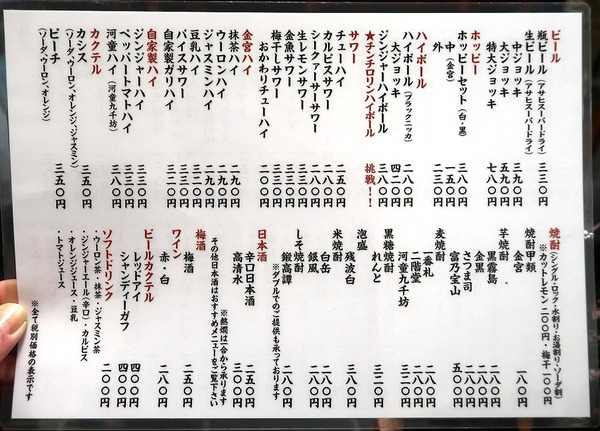 ビール
瓶ビール（アサヒスーパードライ） 五三〇円
生ビール（アサヒスーパードライ）
中ジョッキ 三九〇円
大ジョッキ 五九〇円
特大ジョッキ 七八〇円
ホッピー
ホッピーセット（白・黒） 三八〇円
中（金宮） 一五〇円
外 二三〇円
ハイボール
ハイボール（ブラックニッカ） 二八〇円
大ジョッキ 四二〇円
ジンジャーハイボール 三一〇円
★チンチロリンハイボール 挑戦！！
サワー
チューハイ 二五〇円
カルピスサワー 二八〇円
シークァーサーサワー 二八〇円
生レモンサワー 三三〇円
金魚サワー 三三〇円
梅干しサワー 三三〇円
おかわりチューハイ 二〇〇円
金宮ハイ
抹茶ハイ 二九〇円
ウーロンハイ 二九〇円
ジャスミンハイ 二九〇円
豆乳ハイ 三三〇円
バイスサワー 三三〇円
自家製ガリハイ 三二〇円
自家製ハイ
ジンジャーハイ 三三〇円
ペッパートマトハイ 三三〇円
河童ハイ（河童九千坊） 三八〇円
カクテル
カシス
（ソーダ、ウーロン、オレンジ、ジャスミン） 三五〇円
ピーチ
（ソーダ、ウーロン、オレンジ） 三五〇円
焼酎（シングル・ロック・水割り・お湯割り・ソーダ割）
※カットレモン 二〇〇円・梅干 一〇〇円
焼酎甲類
金宮 一八〇円
芋焼酎
黒霧島 二八〇円
金黒 二八〇円
さつま司 二八〇円
富乃宝山 五〇〇円
麦焼酎
一番札 二八〇円
二階堂 二八〇円
河童九千坊 三二〇円
黒糖焼酎
れんと 三二〇円
泡盛
残波白 三八〇円
米焼酎
白岳 二八〇円
銀風 二八〇円
しそ焼酎
鍛高譚 二八〇円
※ダブルでのご提供も承っております
日本酒
辛口日本酒 二五〇円
高清水 三〇〇円
※熱燗は一合から承ります
その他日本酒はおすすめメニューをご覧下さい
梅酒
梅酒 二五〇円
ワイン
赤・白 二八〇円
ビールカクテル
レッドアイ 四〇〇円
シャンディーガフ 四〇〇円
ソフトドリンク 二〇〇円
・ウーロン茶・抹茶・ジャスミン茶
・ジンジャーエール（辛口）・カルピス
・オレンジジュース・豆乳
・トマトジュース
※全て税別価格の表示です